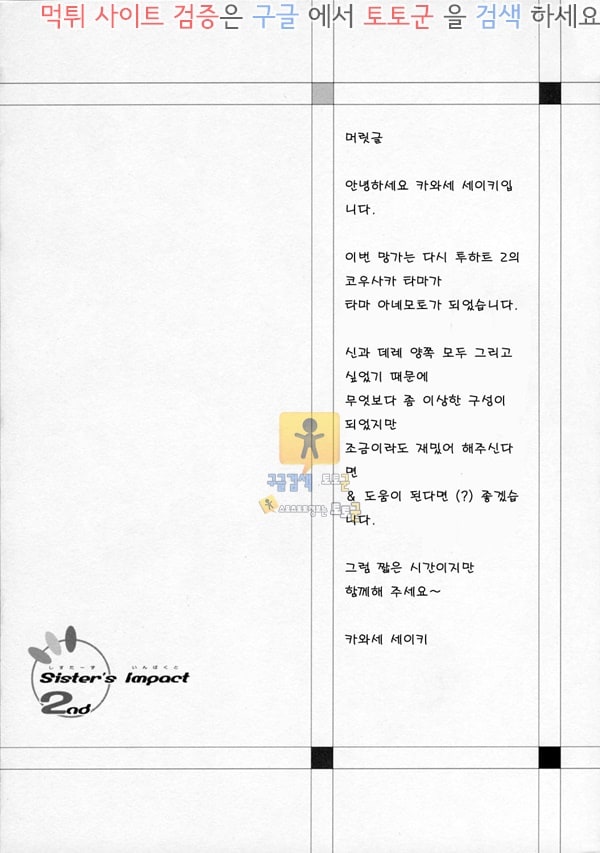 먹튀 사이트 검증은 구글 에서 토토군 을 검색 하세요
머릿글
안녕하세요 카와세 세이키입
니다.
이번 망가는 다시 투하트 2의
코우사카 타마가
타마 아네모토가 되었습니다.
신과 데레 양쪽 모두 그리고
싶었기 때문에
무엇보다 좀 이상한 구성이
되었지만
조금이라도 재밌어 해주신다
면
& 도움이 된다면 (?) 좋겠습
니다.
그럼 짧은 시간이지만
함께해 주세요~
카와세 세이키
구글검색 토토군
토토군
しすたーず いんぱくと
Sister's Impact
2nd